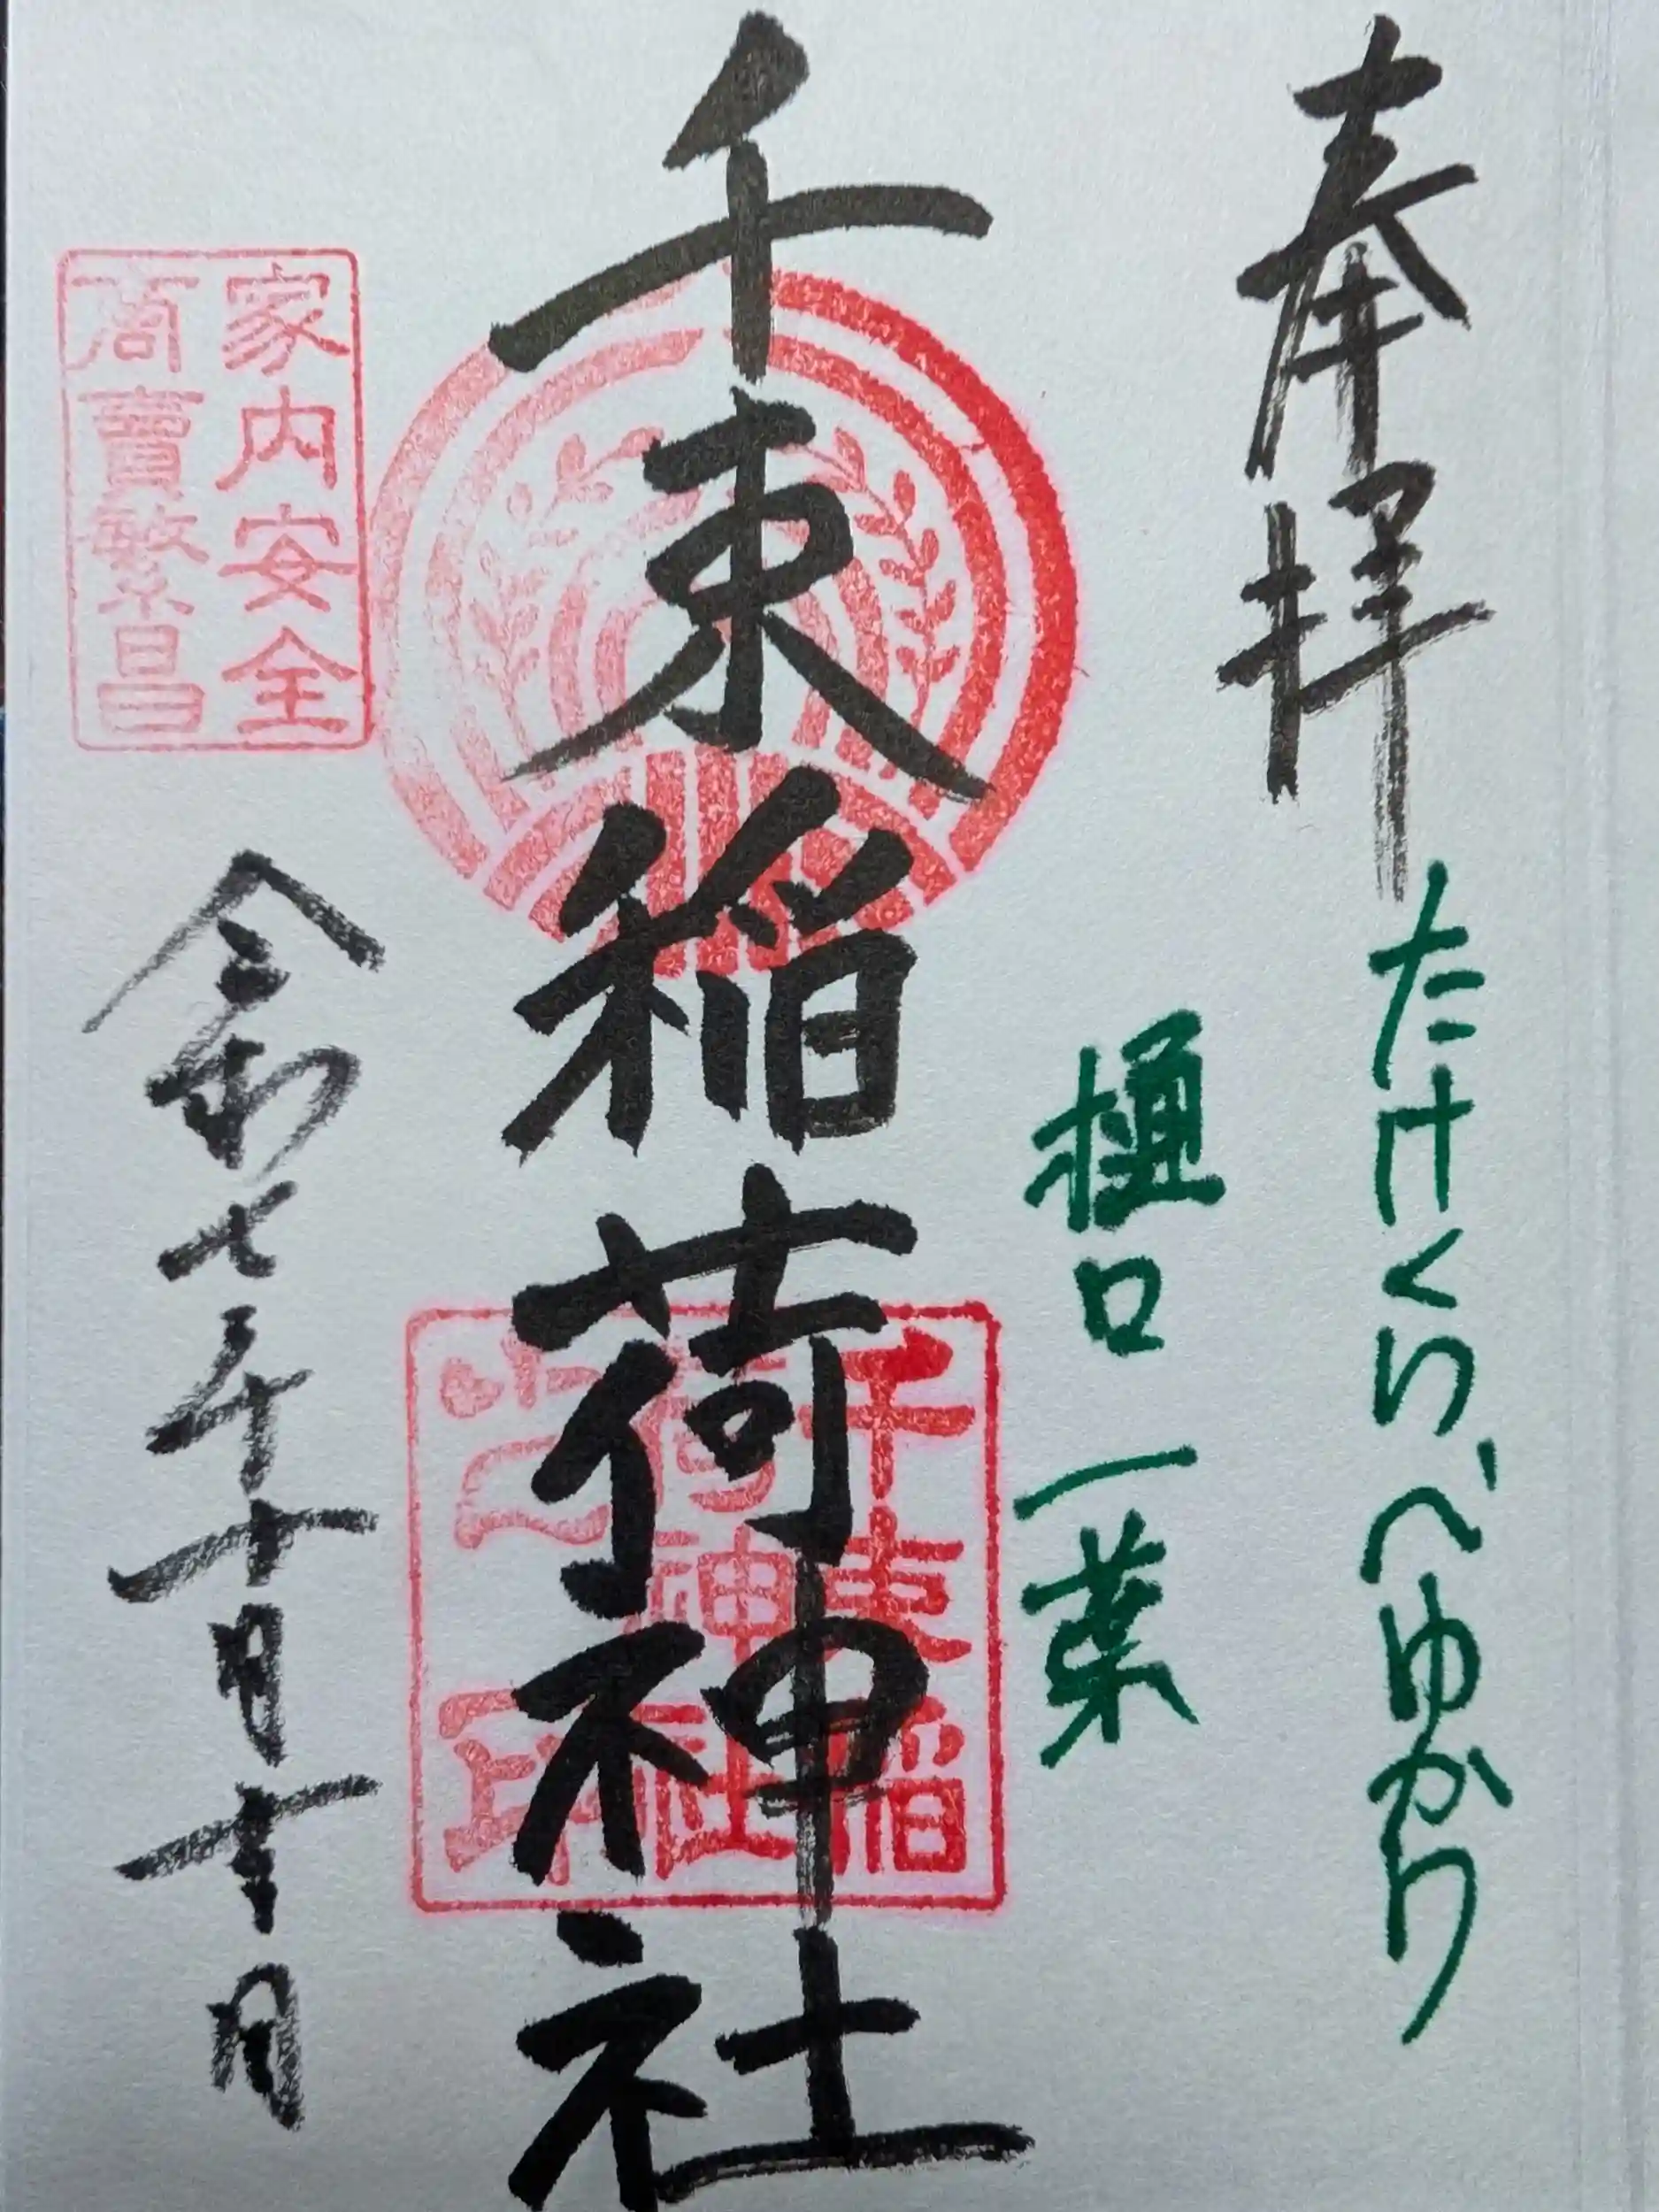 奉拝
たけくらべゆかり
樋口一葉
千束稲荷神社
千束稲
荷神社
之印
家内安全
商賣繁昌
令和七年十月十日